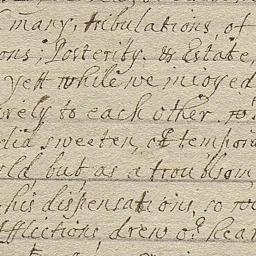 many, tribulations, of
ons; Posterity. & Estate,
yett while we inioyed
vely to each other. w
did sweeten, ot tempor
ld but as a troublsom
his dispensations, so w
fflictions, drew or. hear